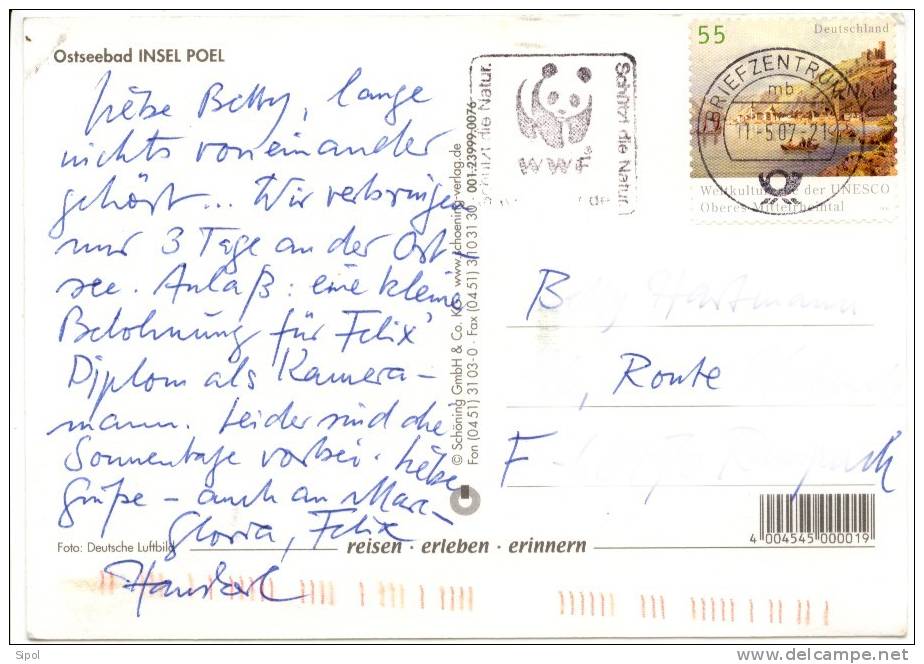 Ostseebad INSEL POEL
Liebe Betty, lange
nichts voneinander
gehört... Wir verbringen
nur 3 Tage an der Ost-
see. Anlaß: eine kleine
Belohnung für Felix'
Diplom als Kamera-
mann. Leider sind die
Sonnentage vorbei. Liebe
Grüße – auch an Marc –
Gloria, Felix
Foto: Deutsche Luftbild
© Schöning GmbH & Co. KG · www.schoening-verlag.de
Fon (04 51) 31 03-0 · Fax (04 51) 3 10 31 30 001-23999-0076
Schützt die Natur.
WWF
Schützt die Natur.
55
Deutschland
Weltkulturerbe der UNESCO
Oberes Mittelrheintal
BRIEFZENTRUM
mb
11-5.07-21
Betty Hartmann
, Route
F -
reisen · erleben · erinnern
4 004545 000019
Sipol
www.delcampe.net